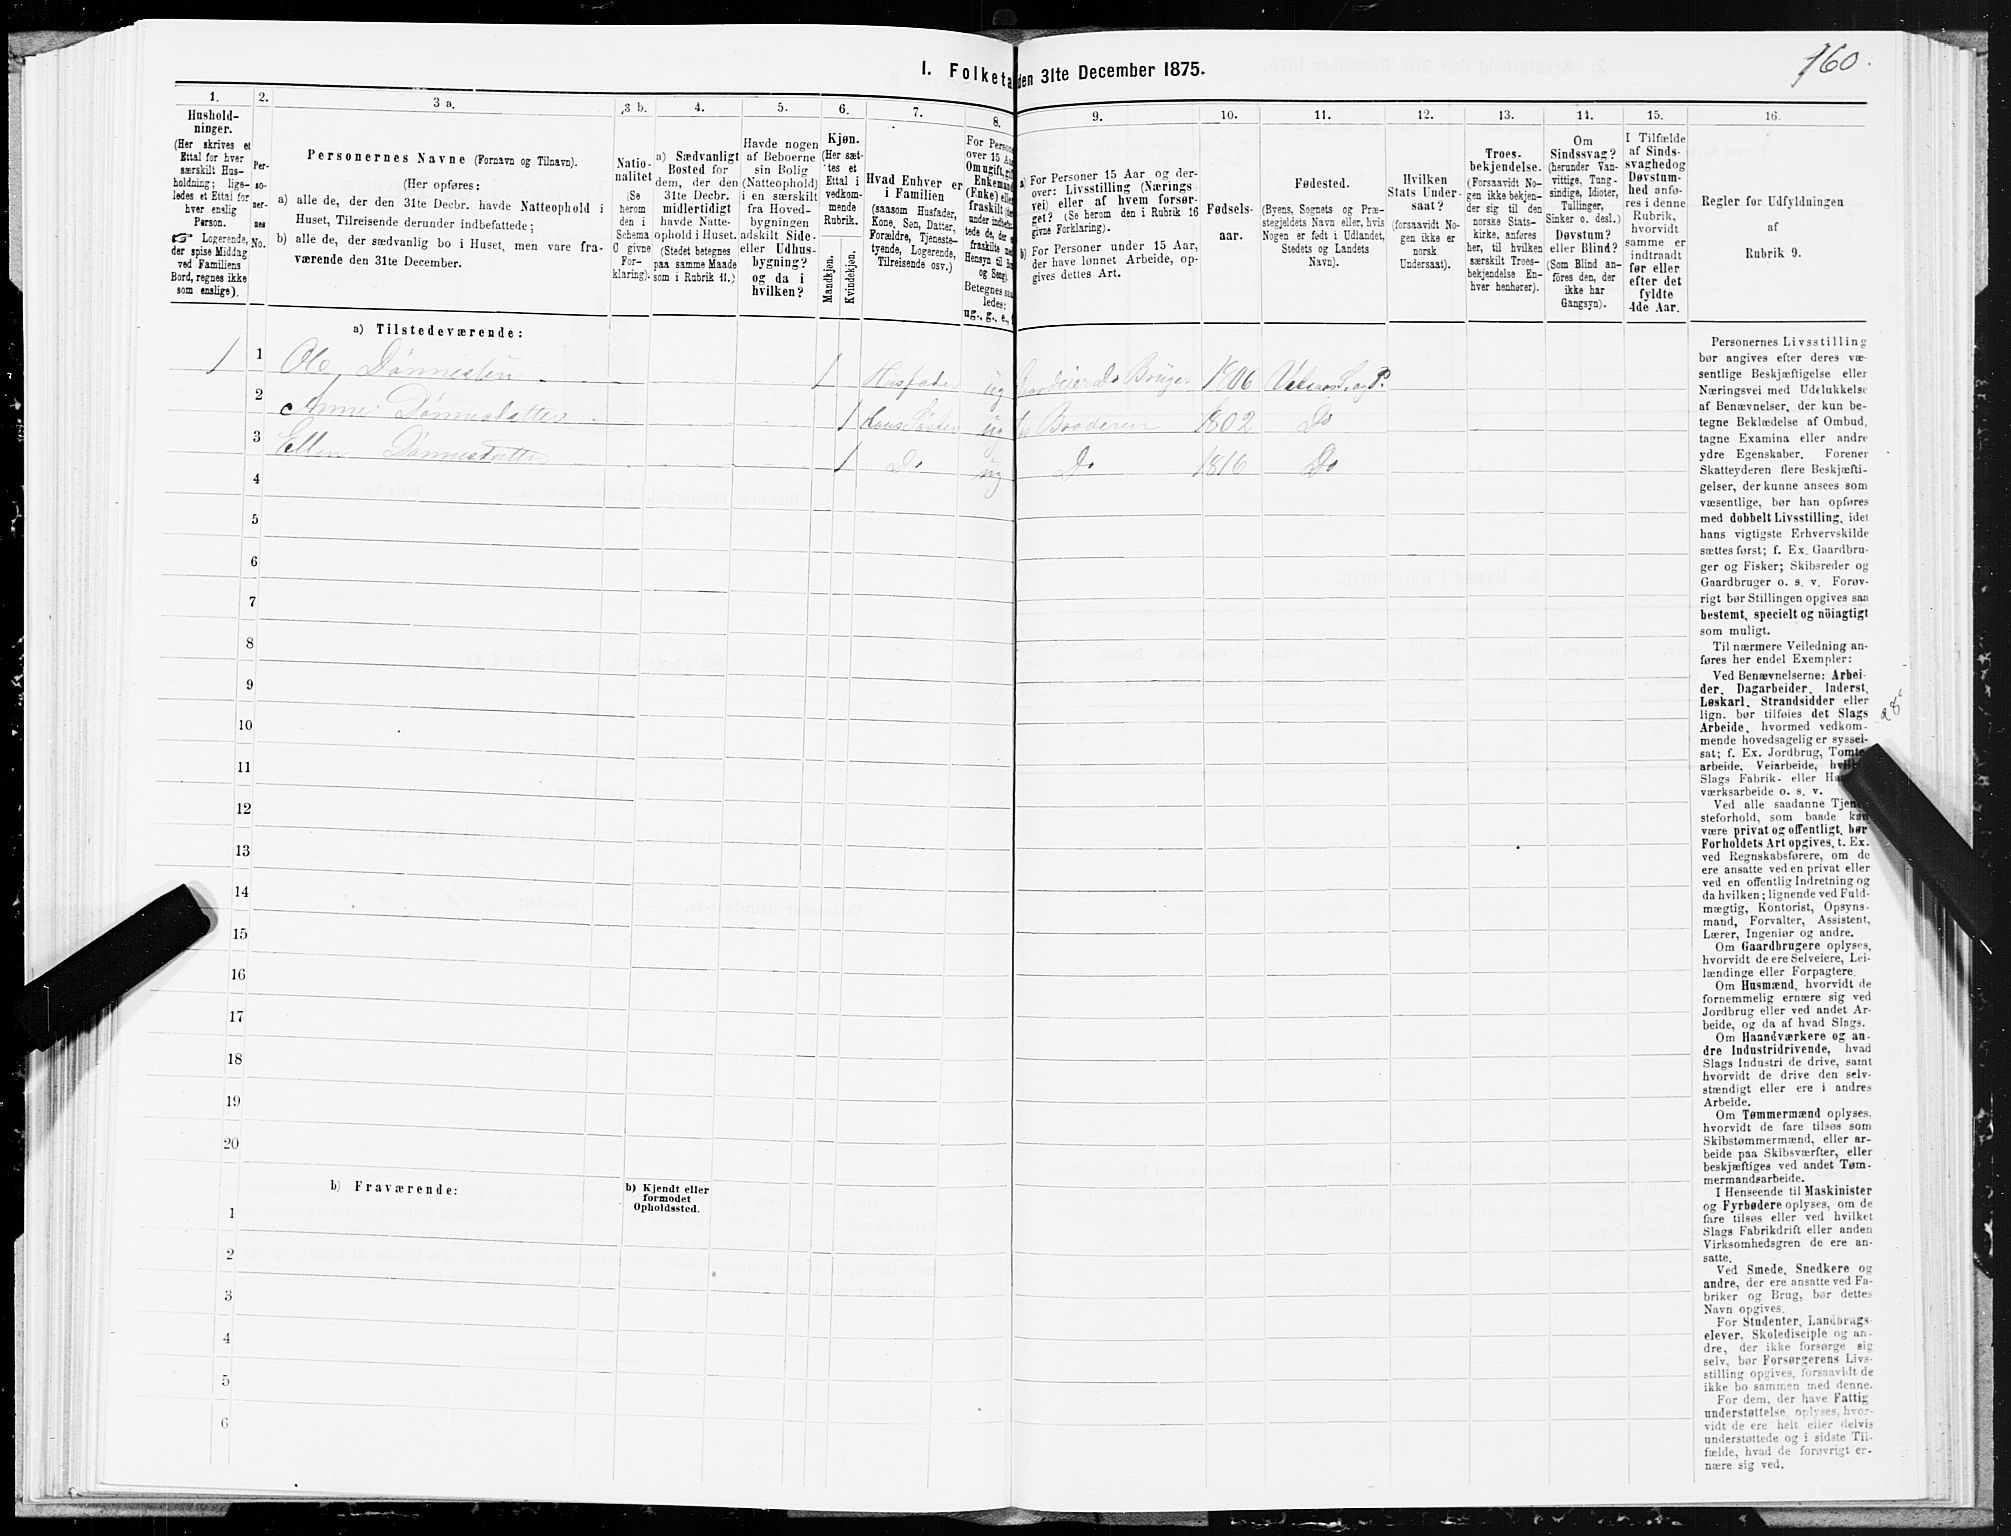 160.
I. Folketa den 31te December 1875.
1.
Hushold-
ninger.
(Her skrives et
Ettal for hver
særskilt Hus-
holdning; lige-
ledes et Ettal for
hver enslig
Person.
☞ Logerende,
der spise Middag
ved Familiens
Bord, regnes ikke
som enslige).
2.
Per-
so-
ner-
nes
No.
3 a.
Personernes Navne (Fornavn og Tilnavn).
(Her opføres:
a) alle de, der den 31te Decbr. havde Natteophold i
Huset, Tilreisende derunder indbefattede;
b) alle de, der sædvanlig bo i Huset, men vare fra-
værende den 31te December.
3 b.
Natio-
nalitet
(Se
herom
den i
Schema
C givne
For-
klaring).
4.
a) Sædvanligt
Bosted for
dem, der den
31te Decbr.
midlertidigt
havde Natte-
ophold i Huset.
(Stedet betegnes
paa samme Maade
som i Rubrik 11.)
5.
Havde nogen
af Beboerne
sin Bolig
(Natteophold)
i en særskilt
fra Hoved-
bygningen
adskilt Side-
eller Udhus-
bygning?
og da i
hvilken?
6.
Kjøn.
(Her sæt-
tes et
Ettal i
vedkom-
mende
Rubrik.
Mandkjøn.
Kvindekjøn.
7.
Hvad Enhver er
i Familien
(saasom Husfader,
Kone, Søn, Datter,
Forældre, Tjeneste-
tyende, Logerende,
Tilreisende osv.)
8.
For Persone
over 15 Aa
Om ugift, gift
Enkemand
(Enke) eller
fraskilt (der
under indbefat-
tede de, der e
fraskilte med
Hensyn til Bo
og Seng).
Betegnes saa
ledes:
ug., g., e., f
9.
a) For Personer 15 Aar og der-
over: Livsstilling (Nærings
vei) eller af hvem forsør-
get? (Se herom den i Rubrik 16
givne Forklaring).
b) For Personer under 15 Aar,
der have lønnet Arbeide, op-
gives dettes Art.
10.
Fødsels-
aar.
11.
Fødested.
(Byens, Sognets og Præ-
stegjeldets Navn eller, hvis
Nogen er født i Udlandet,
Stedets og Landets
Navn).
12.
Hvilken
Stats Under-
saat?
(forsaavidt No-
gen ikke er
norsk
Undersaat).
13.
Troes-
bekjendelse.
(Forsaavidt No-
gen ikke bekjen-
der sig til den
norske Stats-
kirke, anføres
her, til hvilken
særskilt Troes-
bekjendelse En-
hver henhører).
14.
Om
Sindssvag?
(herunder Van-
vittige, Tung-
sindige, Idioter,
Tullinger,
Sinker o. desl.)
Døvstum?
eller Blind?
(Som Blind an-
føres den, der
ikke har
Gangsyn).
15.
I Tilfælde
af Sinds-
svaghed og
Døvstum-
hed anfø-
res i denne
Rubrik,
hvorvidt
samme er
indtraadt
før eller
efter det
fyldte
4de Aar.
16.
Regler for Udfyldningen
af
Rubrik 9.
a) Tilstedeværende:
1 1 Ole Dønnesen 1 Husfader ug Gardeier &amp; Bruger 1806 S. og P.
2 Anne Dønnesdatter 1 Hans Søster ug Broderen 1802 Do
3 Ellen Dønnesdatter 1 Do ug Do 1816 Do
4
5
6
7
8
9
10
11
12
13
14
15
16
17
18
19
20
b) Fraværende:
b) Kjendt eller
formodet
Opholdssted.
1
2
3
4
5
6
Personernes Livsstilling
bør angives efter deres væ-
sentlige Beskjæftigelse eller
Næringsvei med Udelukkelse
af Benævnelser, der kun be-
tegne Beklædelse af Ombud,
tagne Examina eller andre
ydre Egenskaber. Forener
Skatteyderen flere Beskjæfti-
gelser, der kunne ansees som
væsentlige, bør han opføres
med dobbelt Livsstilling, idet
hans vigtigste Erhvervskilde
sættes først; f. Ex. Gaardbru-
ger og Fisker; Skibsreder og
Gaardbruger o. s. v. Forøv-
rigt bør Stillingen opgives saa
bestemt, specielt og nöiagtigt
som muligt.
Til nærmere Veiledning an-
føres her endel Exempler:
Ved Benævnelserne: Arbei-
der, Dagarbeider, Inderst,
Løskarl, Strandsidder eller
lign. bør tilføies det Slags
Arbeide, hvormed vedkom-
mende hovedsagelig er syssel-
sat; f. Ex. Jordbrug, Tomte-
arbeide, Veiarbeide, hvilket
Slags Fabrik- eller Ha
værksarbeide o. s. v.
Ved alle saadanne Tjene-
steforhold, som baade kan
være privat og offentligt, bør
Forholdets Art opgives, t. Ex.
ved Regnskabsførere, om de
ere ansatte ved en privat eller
ved en offentlig Indretning og
da hvilken; lignende ved Fuld-
mægtig, Kontorist, Opsyns-
mand, Forvalter, Assistent,
Lærer, Ingeniør og andre.
Om Gaardbrugere oplyses,
hvorvidt de ere Selveiere, Lei-
lændinge eller Forpagtere.
Om Husmænd, hvorvidt de
fornemmelig ernære sig ved
Jordbrug eller ved andet Ar-
beide, og da af hvad Slags.
Om Haandværkere og an-
dre Industridrivende, hvad
Slags Industri de drive, samt
hvorvidt de drive den selv-
stændigt eller ere i andres
Arbeide.
Om Tømmermænd oplyses,
hvorvidt de fare tilsøs som
Skibstømmermænd, eller ar-
beide paa Skibsværfter, eller
beskjæftiges ved andet Tøm-
mermandsarbeide.
I Henseende til Maskinister
og Fyrbødere oplyses, om de
fare tilsøs eller ved hvilket
Slags Fabrikdrift eller anden
Virksomhedsgren de ere an-
satte.
Ved Smede, Snedkere og
andre, der ere ansatte ved Fa-
briker og Brug, bør dettes
Navn opgives.
For Studenter, Landbrugs-
elever, Skoledisciple og an-
dre, der ikke forsørge sig
selv, bør Forsørgerens Livs-
stilling opgives, forsaavidt de
ikke bo sammen med denne.
For dem, der have Fattig-
understøttelse, oplyses, hvor-
vidt de ere helt eller delvis
understøttede og i sidste Til-
fælde, hvad de forøvrigt er-
nære sig ved.
28